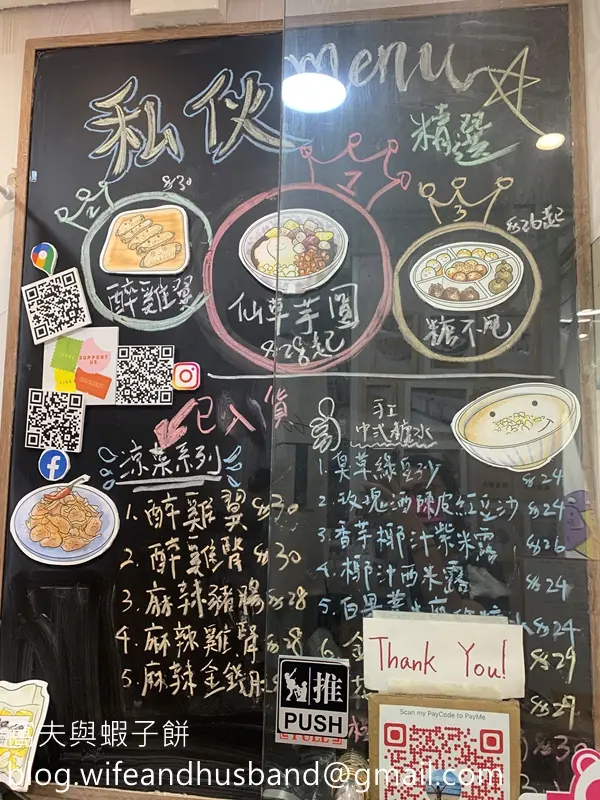 私伙menu
精選
2
$30
醉雞翼
1
仙草芋圓
$28起
3
$26起
糖不甩
SUPPORT US
已入貨
涼菜系列
1. 醉雞翼 $30
2. 醉雞腎 $30
3. 麻辣豬腸 $28
4. 麻辣雞腎 $28
5. 麻辣金錢肚
手工
中式糖水
1. 臭草綠豆沙 $24
2. 玫瑰酒陳皮紅豆沙 $24
3. 香芋椰汁紫米露 $26
4. 椰汁西米露 $24
5. 白果 $24
6. 金 $29
$29
$30
Thank You!
Scan my PayCode to PayMe
推
PUSH
夫與蝦子餅
blog.wifeandhusband@gmail.com